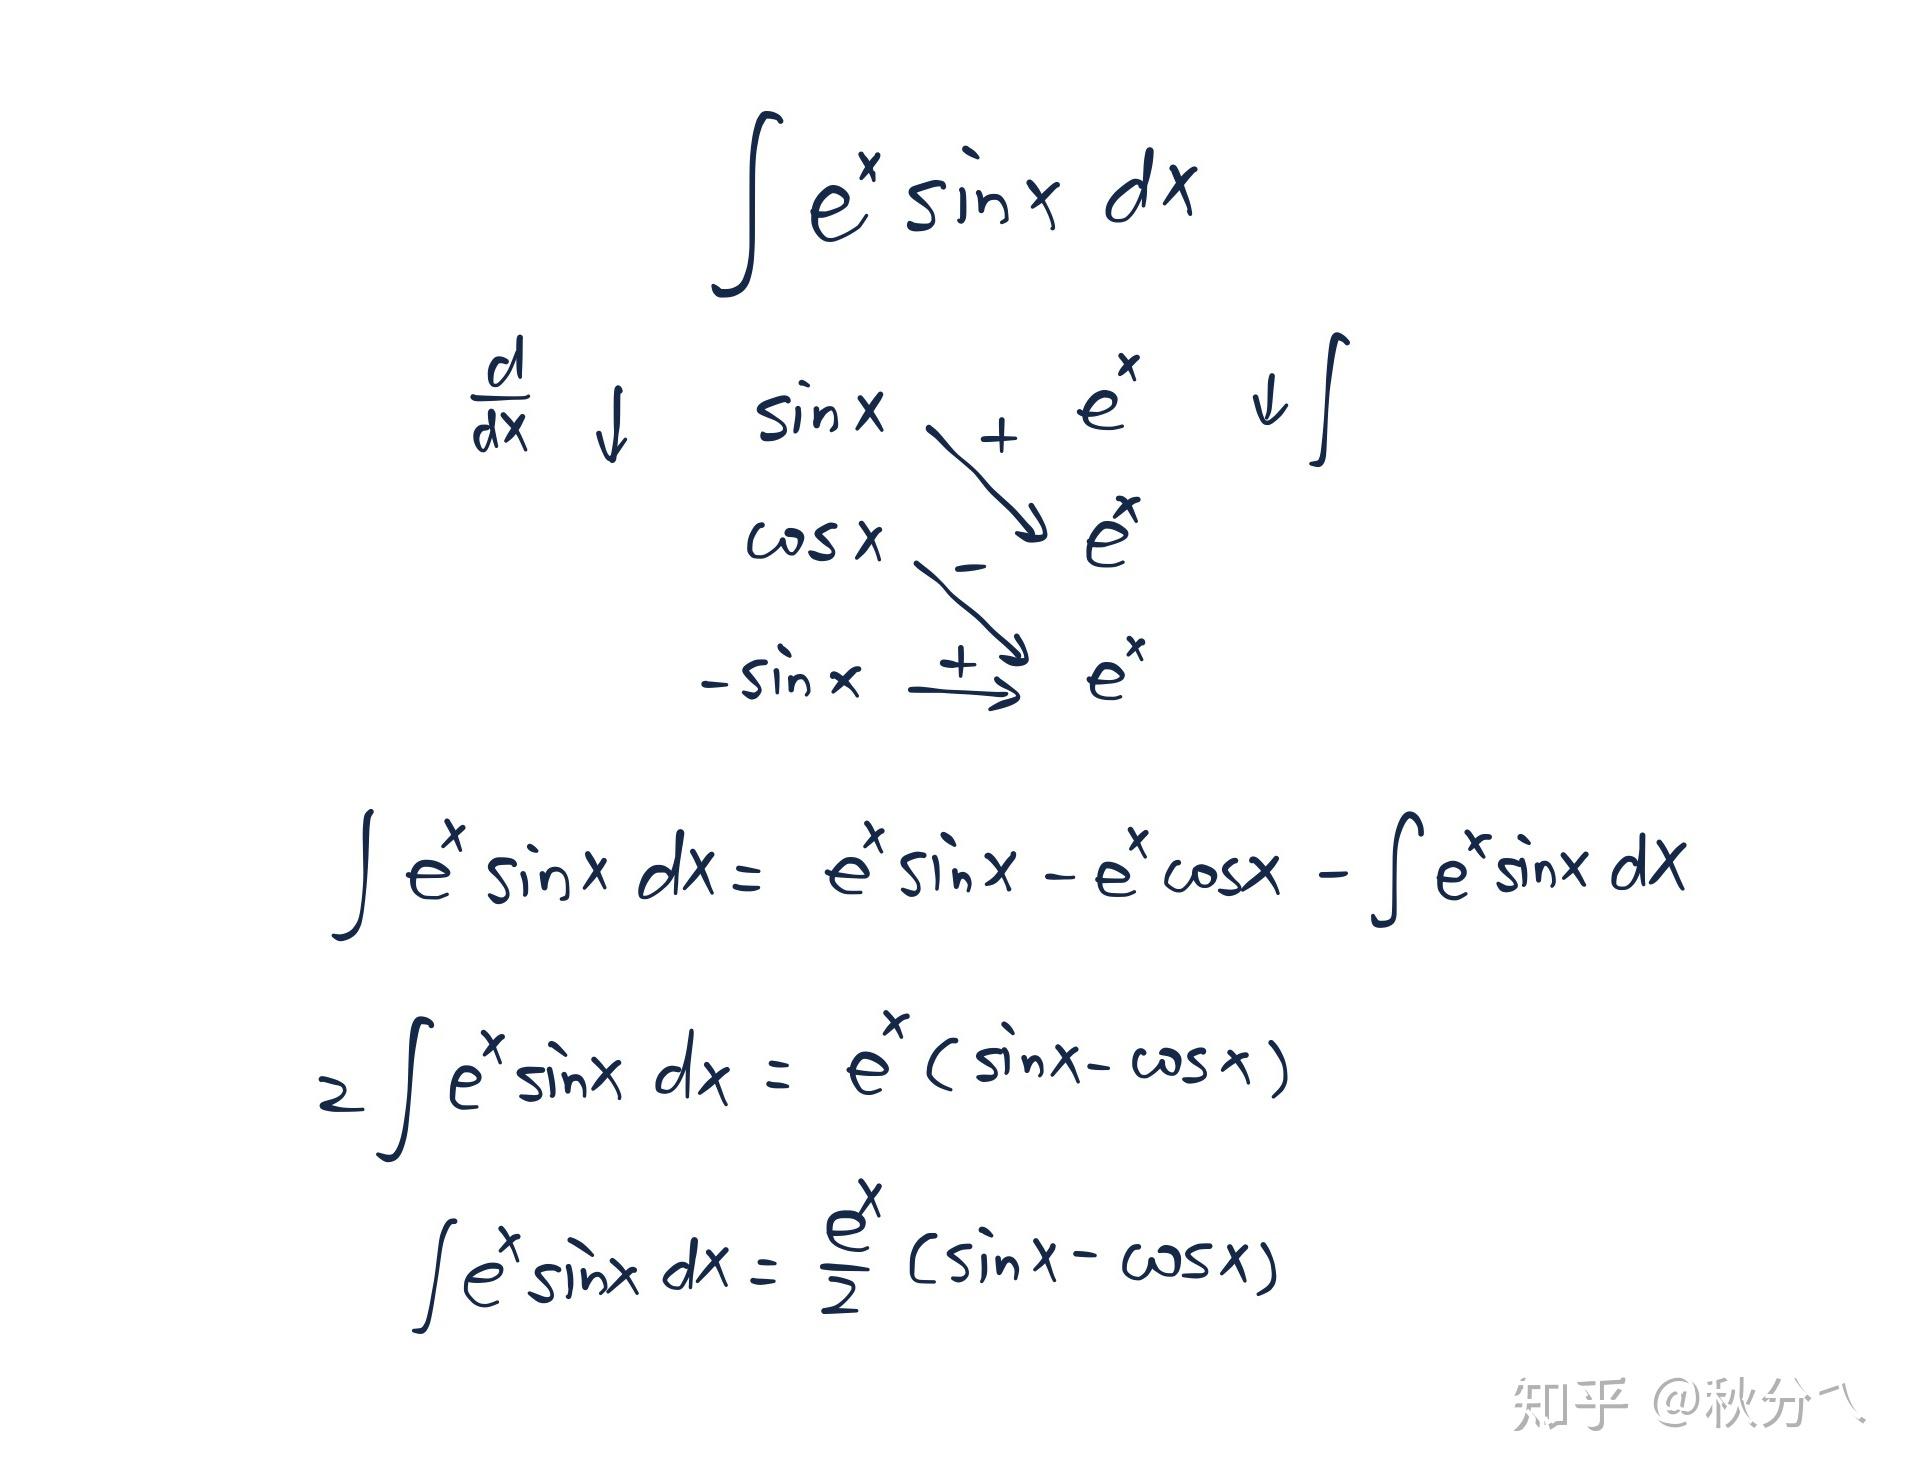 ∫ eˣ sinx dx
d/dx ↓ sinx + eˣ ↓ ∫
cosx - eˣ
-sinx + eˣ
∫ eˣ sinx dx = eˣ sinx - eˣ cosx - ∫ eˣ sinx dx
2 ∫ eˣ sinx dx = eˣ (sinx - cosx)
∫ eˣ sinx dx = eˣ/2 (sinx - cosx)
知乎 @秋分八